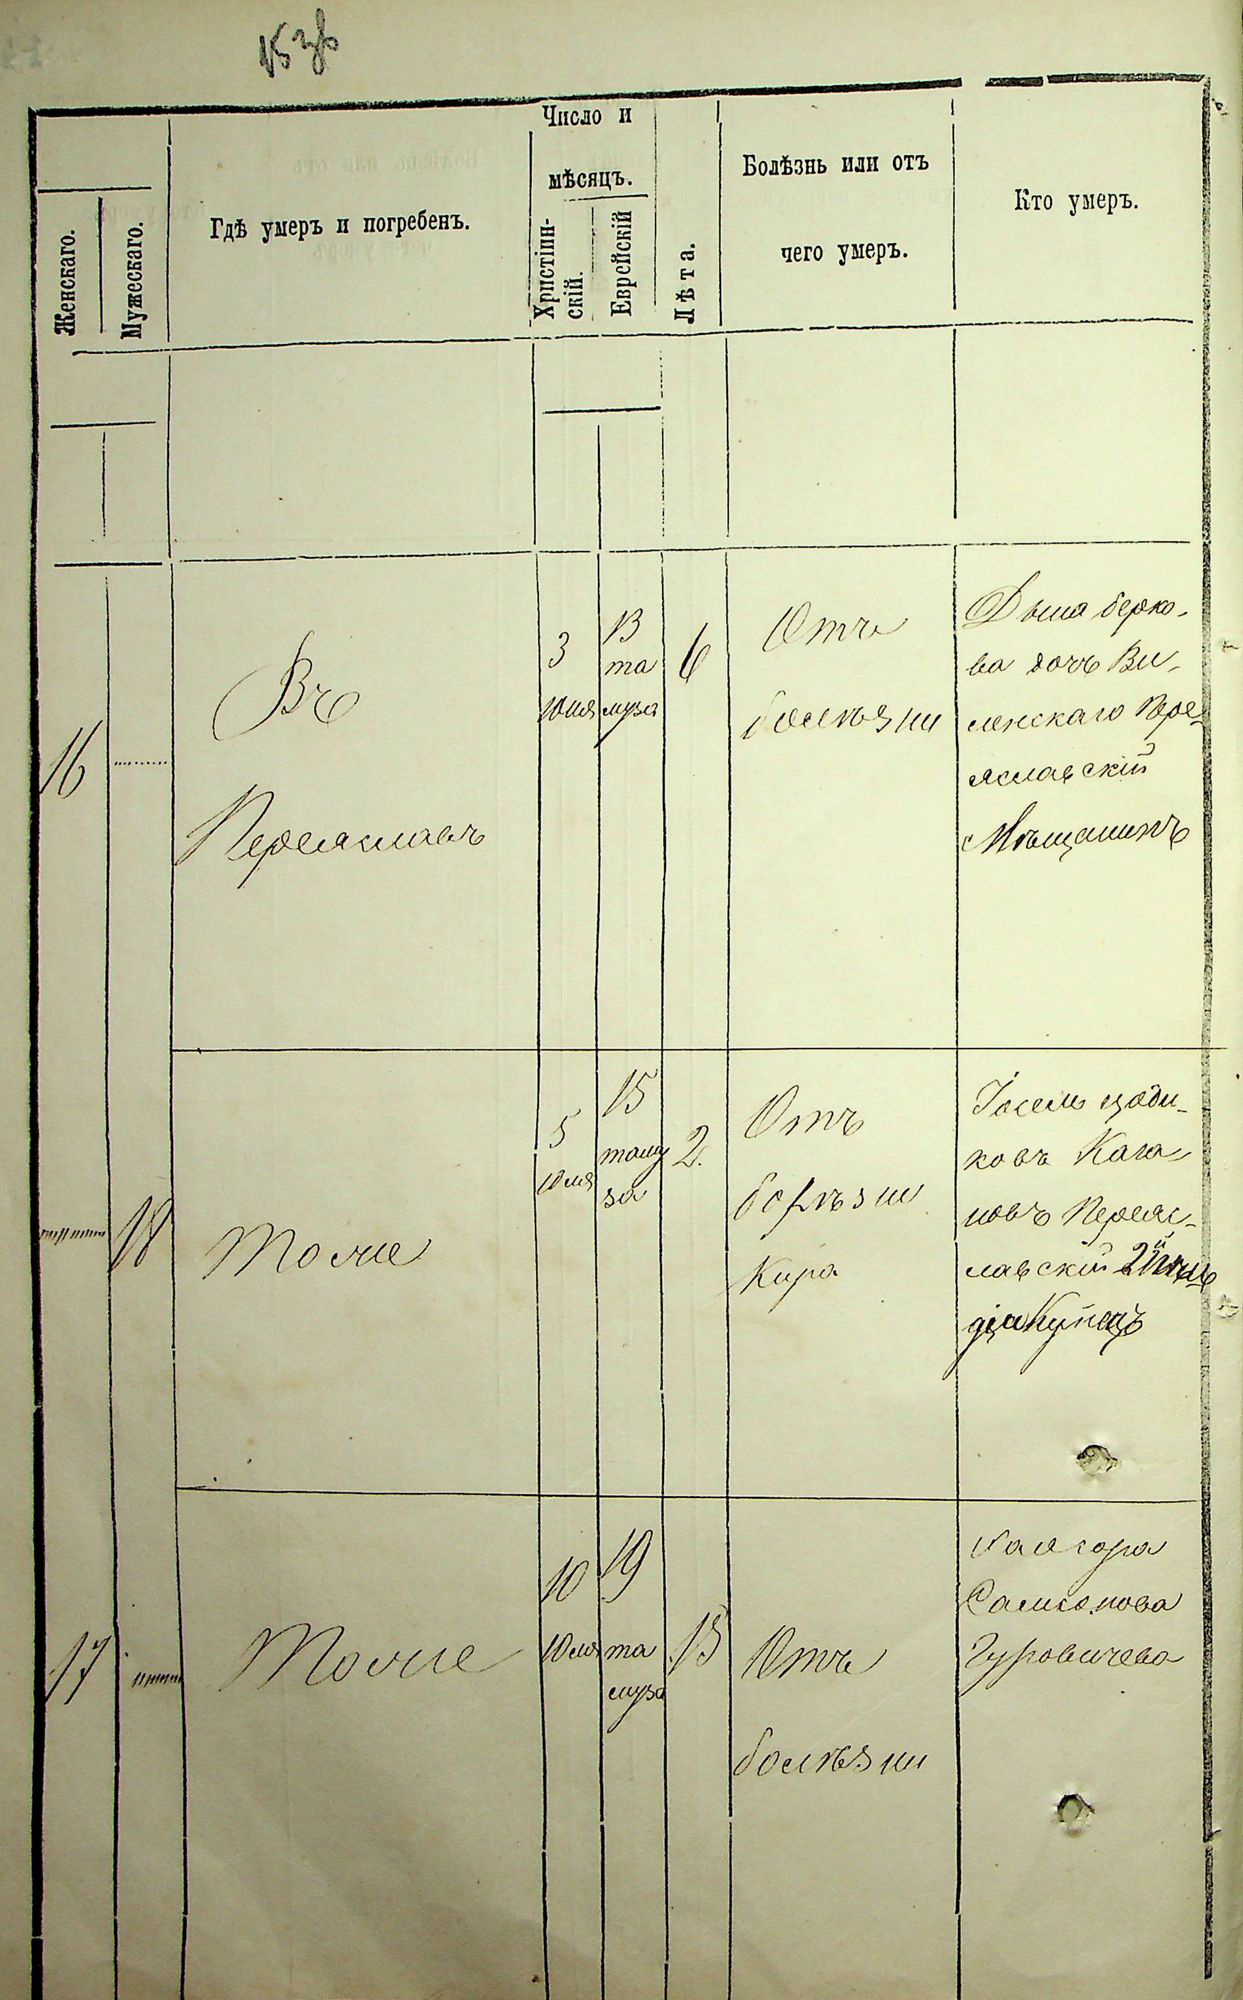 Женскаго.
Мужескаго.
Гдѣ умеръ и погребенъ.
Число и
мѣсяцъ.
Христіин-
скій.
Еврейскій
Лѣта.
Болѣзнь или отъ
чего умеръ.
Кто умеръ.
16
Въ
Переяславъ
3
Юля
13
та
муза
6
Отъ
болѣзни
Дыша берко-
ва дочь Ви-
ленскаго Пере-
яславскій
Мѣщанинъ
18
Тоже
5
Юля
15
таму
за
2.
Отъ
болѣзни
Кира
Іосель цоди-
ковъ Кага-
новъ Переяс-
лавскій 2й
діи Купецъ
17
Тоже
10
Юля
19
та
муза
15
Отъ
болѣзни
Самсонова
Гуровичева